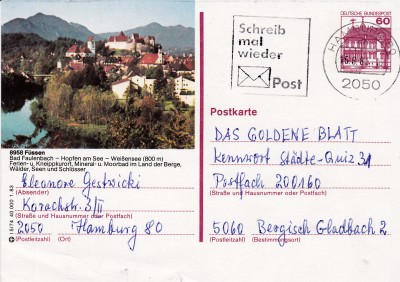 Schreib
mal
wieder
Post
DEUTSCHE BUNDESPOST
60
2050
8958 Füssen
Bad Faulenbach – Hopfen am See – Weißensee (800 m)
Ferien- u. Kneippkurort, Mineral- u. Moorbad im Land der Berge,
Wälder, Seen und Schlösser
Eleonore Gestwicki
(Absender)
Korachstr. 3/II
(Straße und Hausnummer oder Postfach)
2050 Hamburg 80
(Postleitzahl) (Ort)
Postkarte
DAS GOLDENE BLATT
Kennwort Städte-Quiz 31
Postfach 200160
(Straße und Hausnummer oder Postfach)
5060 Bergisch Gladbach 2
(Postleitzahl) (Bestimmungsort)